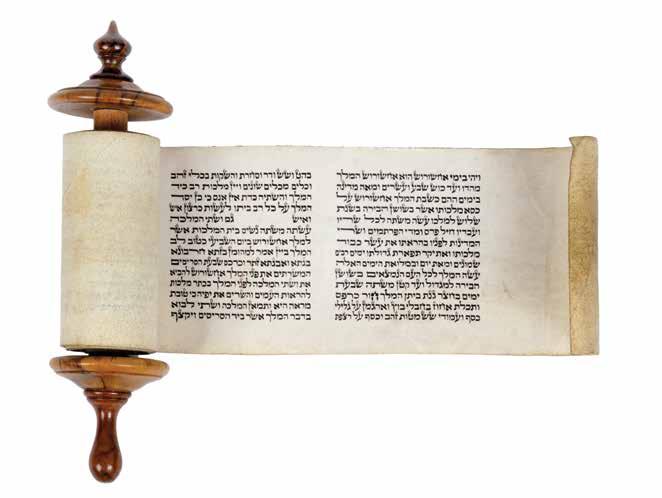 ויהי בימי אחשורוש הוא אחשורוש המלך
מהדו ועד כוש שבע ועשרים ומאה מדינה
בימים ההם כשבת המלך אחשורוש על
כסא מלכותו אשר בשושן הבירה בשנת
שלוש למלכו עשה משתה לכל שריו
ועבדיו חיל פרס ומדי הפרתמים ושרי
המדינות לפניו בהראתו את עשר כבוד
מלכותו ואת יקר תפארת גדולתו ימים רבים
שמונים ומאת יום ובמלואת הימים האלה
עשה המלך לכל העם הנמצאים בשושן
הבירה למגדול ועד קטן משתה שבעת
ימים בחצר גנת ביתן המלך חור כרפס
ותכלת אחוז בחבלי בוץ וארגמן על גלילי
כסף ועמודי שש מטות זהב וכסף על רצפת
בהט ושש ודר וסחרת והשקות בכלי זהב
וכלים מכלים שונים ויין מלכות רב כיד
המלך והשתיה כדת אין אנס כי כן יסד
המלך על כל רב ביתו לעשות כרצון איש
ואיש גם ושתי המלכה
עשתה משתה נשים בית המלכות אשר
למלך אחשורוש ביום השביעי כטוב לב
המלך ביין אמר למהומן בזתא חרבונא
בגתא ואבגתא זתר וכרכס שבעת הסריסים
המשרתים את פני המלך אחשורוש להביא
את ושתי המלכה לפני המלך בכתר מלכות
להראות העמים והשרים את יפיה כי טובת
מראה היא ותמאן המלכה ושתי לבוא
בדבר המלך אשר ביד הסריסים ויקצף